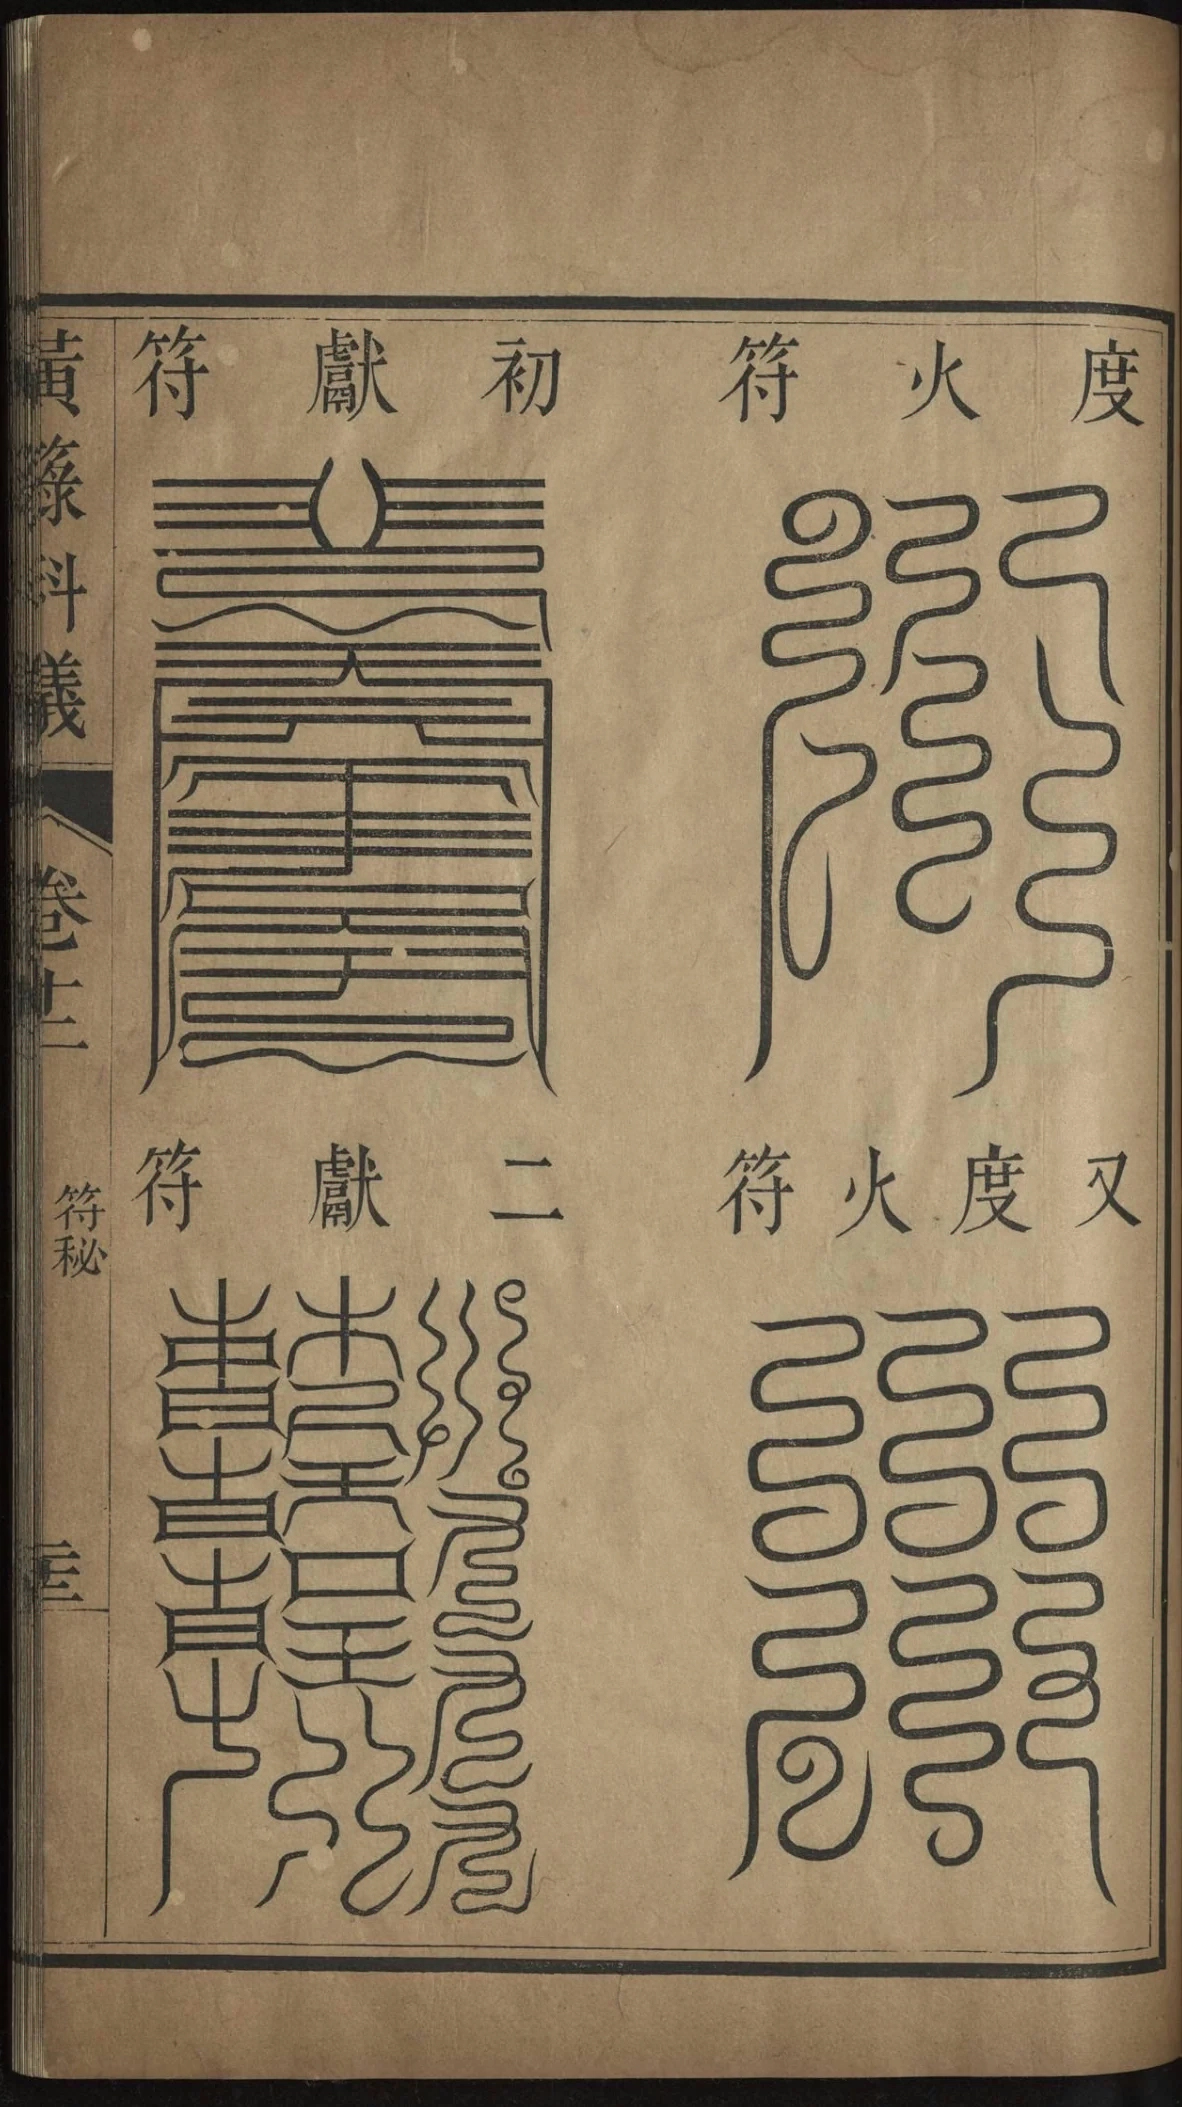 度火符
初獻符
又度火符
二獻符
黃籙科儀
卷十二
符秘